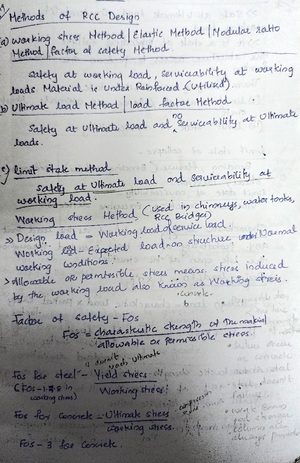 Methods of RCC Design
(a) Working stress Method | Elastic Method | Modular ratio
Method | factor of safety Method
safety at working load, serviceability at working
loads Material is under Reinforced (Utilised)
(b) Ultimate Load Method | load factor Method
Safety at Ultimate load and no serviceability at Ultimate
loads.
c) limit state method
Safety at Ultimate load and serviceability at
working load.
Working stress Method (used in chimneys, water tanks,
RCC Bridges)
>> Design load = Working load or service load.
Working load - Expected load on structure under Normal
working conditions.
>> Allowable or permissible stress means, stress induced
by the working load also known as Working stress.
Factor of Safety - FOS
FOS = characteristic strength of the material
allowable or permissible stress.
doesn't reach Ultimate
FOS for steel - Yield stress
(FOS - in working stress)
Working stress
FOS for concrete - Ultimate stress
compression
working stress.
FOS - 3 for concrete.